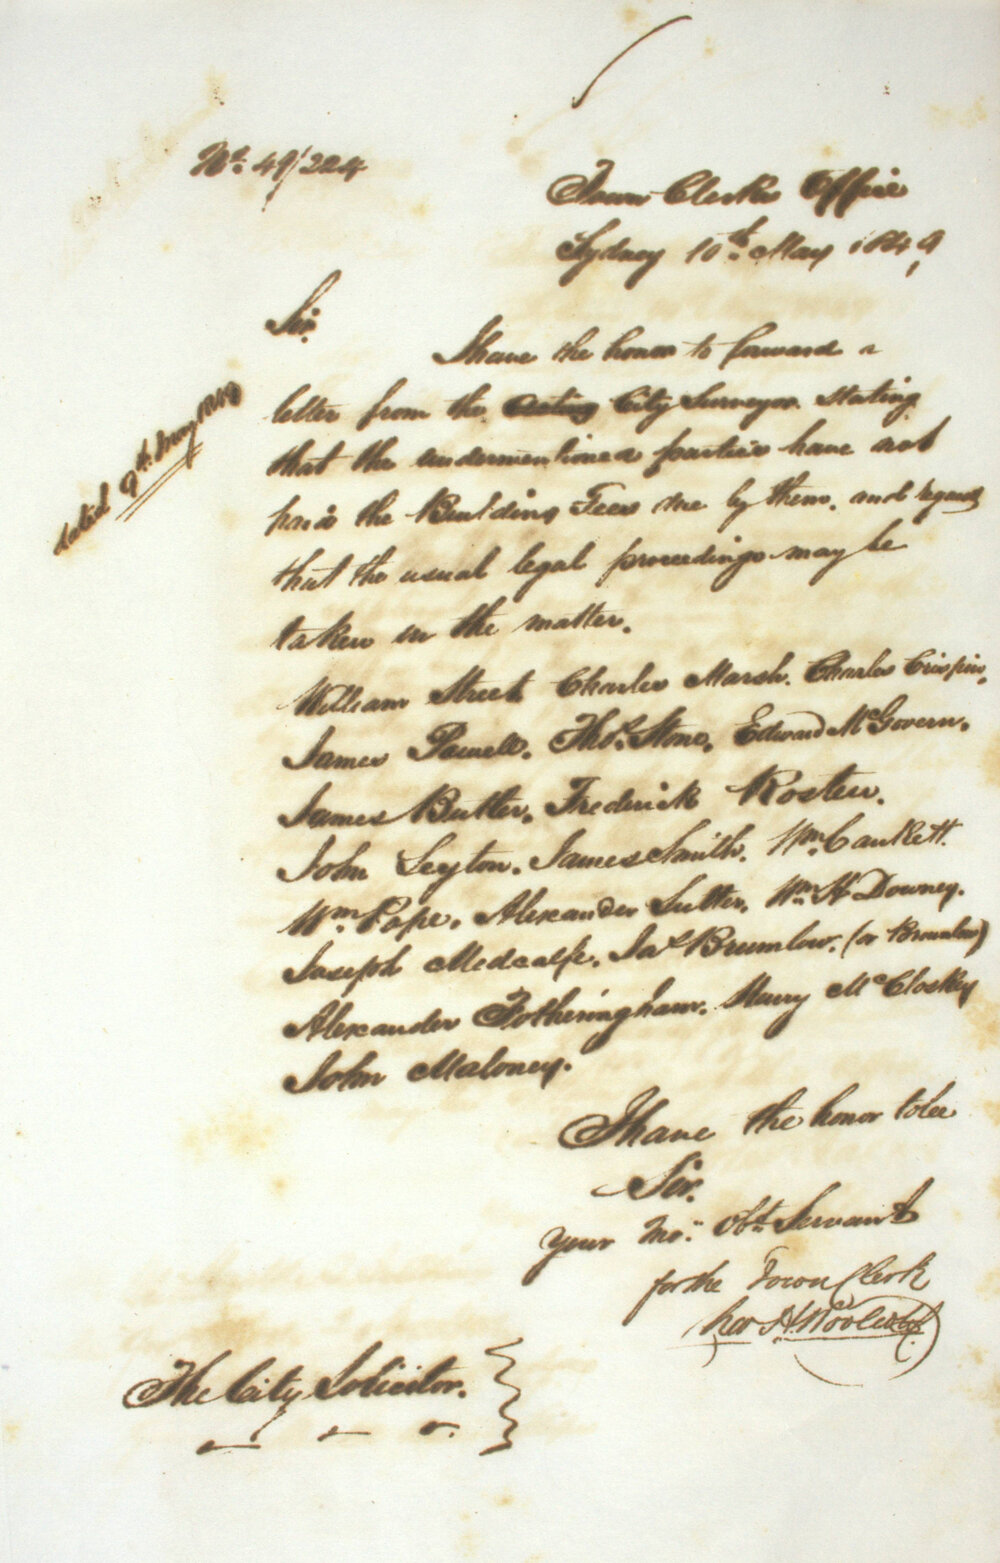 No. 49/224
Town Clerks Office
Sydney 10th May 1849
Sir.
I have the honor to forward a
letter from the Acting City Surveyor. stating
dated 9th May 1849
that the undermentioned parties have not
paid the Building Fees due by them, and request
that the usual legal proceedings may be
taken in the matter.
William Street Charles Marsh. Charles Crispin,
James Powell. Thos. Stone, Edward McGovern,
James Butler, Frederick Rosten.
John Leyton. James Smith. Wm. Cankett.
Wm Pope, Alexander Sutter, Wm. H Downey.
Joseph Medcalfe. Jas Brumlow. (or Brownlow)
Alexander Fotheringham. Henry McCloskey
John Maloney.
I have the honor to be
Sir.
Your Mo: Obt. Servant
for the Town Clerk
The City Solicitor.